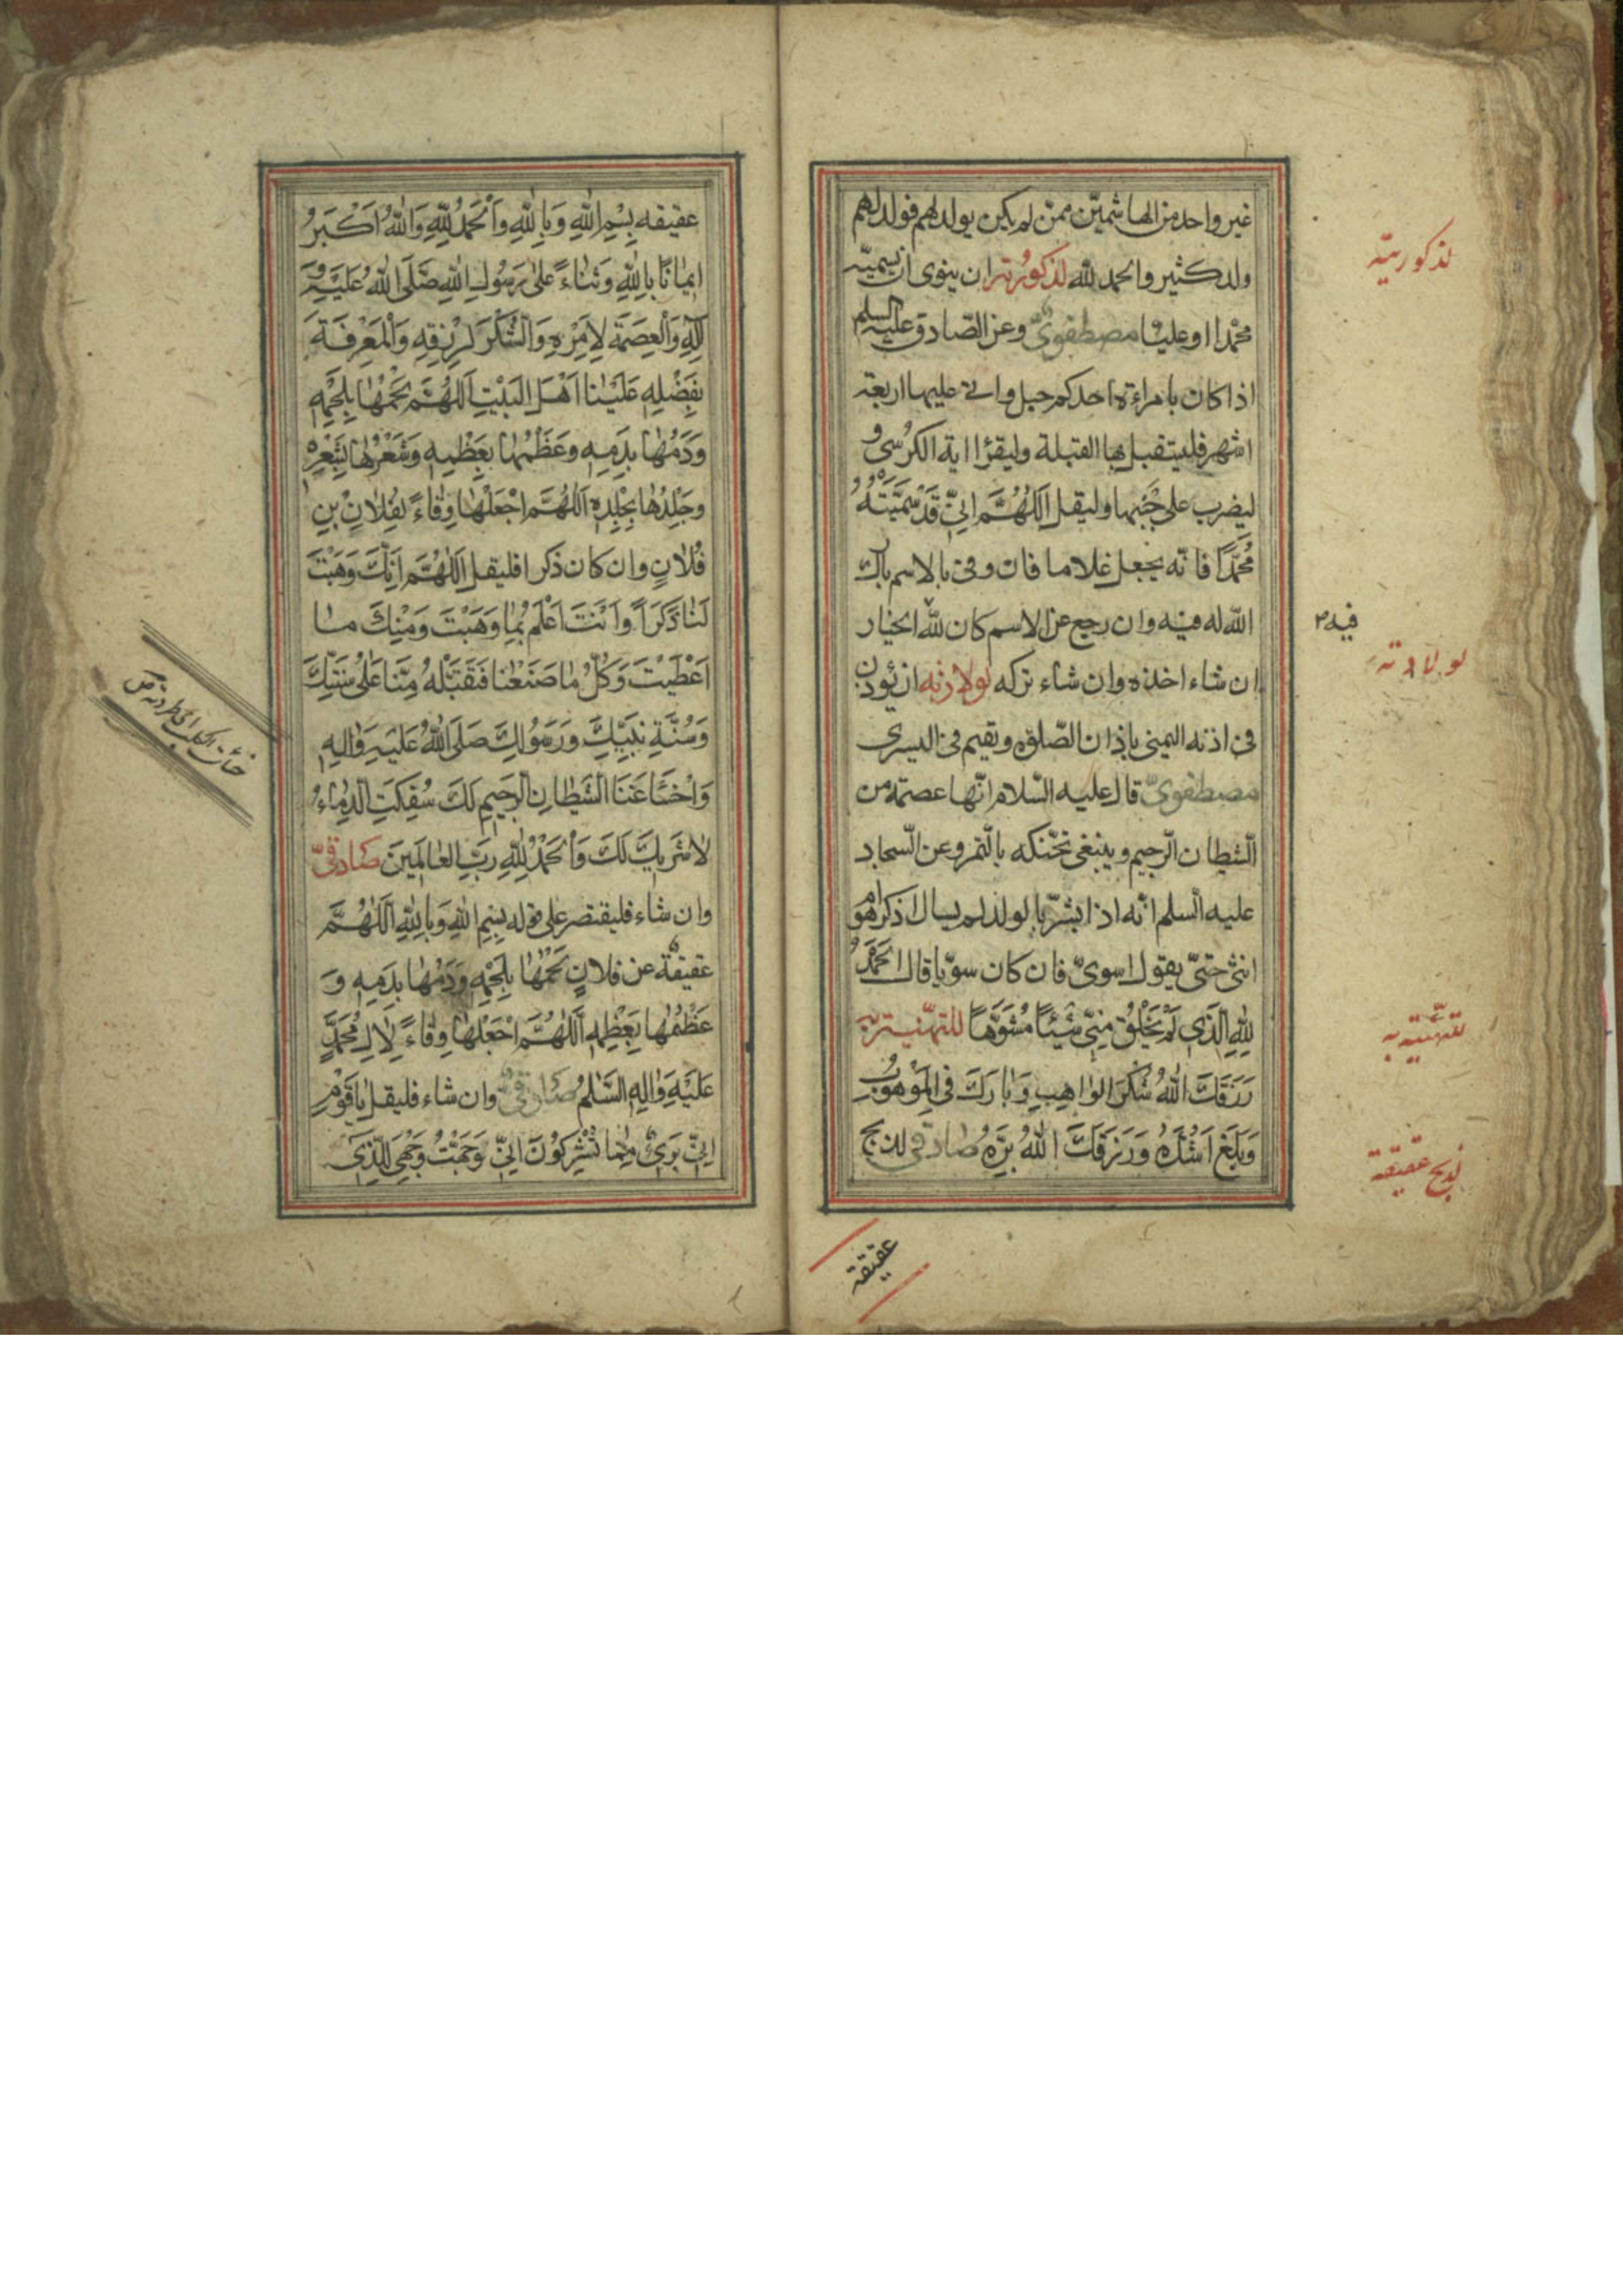 غير واحد من الهاشميّين ممّن لم يكن يولد لهم فولد لهم
ولد كثير والحمد للّه لذكورته ان ينوى ان يسميّه
محمّدا او عليّا مصطفوىّ وعن الصّادق عليه السلم
اذا كان بامراءة احدكم حبل واتى عليها اربعة
اشهر فليستقبل بها القبلة وليقرا اية الكرسى و
ليضرب على جنبها وليقل اَللّهُمَّ اِنّى قَدْ سَمَّيْتُهُ
مُحَمَّدًا فانّه يجعل غلاما فان وفى بالاسم بارك
اللّه له فيه وان رجع عن الاسم كان للّه الخيار
ان شاء اخذه وان شاء تركه لولادته ان يؤذن
فى اذنه اليمنى باذان الصّلوة ويقيم فى اليسرى
مصطفوىّ قال عليه السّلام انّها عصمة من
الشّيطان الرّجيم وينبغى تحنّكه بالتّمر وعن السّجاد
عليه السلم انّه اذا بشّر بالولد لم يسال اذكر اهو ام
انثى حتىّ يقول اسوىّ فان كان سويّا قال اَلْحَمْدُ
لِلّهِ الَّذى لَمْ يَخْلُقْ مِنّى شَيْئًا مُشَوَّهًا للتهنية به
رَزَقَكَ اللّهُ شُكْرَ الواهِبِ وَبارَكَ فِى الْمَوْهُوبِ
وَبَلَغَ اَشُدَّهُ وَرَزَقَكَ اللّهُ بِرَّهُ صادقى لذبح
لذكوريته
فيه
لولادته
للتهنية به
لذبح عقيقة
عقيقة
عقيقه بِسْمِ اللّهِ وَبِاللّهِ وَالْحَمْدُ لِلّهِ وَاللّهُ اَكْبَرُ
ايمانًا بِاللّهِ وَثَناءً عَلى رَسُولِ اللّهِ صَلَّى اللّهُ عَلَيْهِ وَ
الِهِ وَالْعِصْمَةَ لِاَمْرِهِ وَالشُّكْرَ لِرِزْقِهِ وَالْمَعْرِفَةَ
بِفَضْلِهِ عَلَيْنا اَهْلَ الْبَيْتِ اَللّهُمَّ لَحْمُها بِلَحْمِهِ
وَدَمُها بِدَمِهِ وَعَظْمُها بِعَظْمِهِ وَشَعْرُها بِشَعْرِهِ
وَجِلْدُها بِجِلْدِهِ اَللّهُمَّ اجْعَلْها وِقاءً لِفُلانِ بْنِ
فُلانٍ وان كان ذكرا فليقل اَللّهُمَّ اِنَّكَ وَهَبْتَ
لَنا ذَكَرًا وَاَنْتَ اَعْلَمُ بِما وَهَبْتَ وَمِنْكَ ما
اَعْطَيْتَ وَكُلُّ ما صَنَعْنا فَتَقَبَّلْهُ مِنّا عَلى سُنَّتِكَ
وَسُنَّةِ نَبِيِّكَ وَرَسُولِكَ صَلَّى اللّهُ عَلَيْهِ وَالِهِ
وَاخْسَأْ عَنَّا الشَّيْطانَ الرَّجيمَ لَكَ سُفِكَتِ الدِّماءُ
لا شَريكَ لَكَ وَالْحَمْدُ لِلّهِ رَبِّ العالَمينَ صادقىّ
وان شاء فليقتصر على قوله بِسْمِ اللّهِ وَبِاللّهِ اَللّهُمَّ
عقيقة عن فلانٍ لَحْمُها بِلَحْمِهِ وَدَمُها بِدَمِهِ وَ
عَظْمُها بِعَظْمِهِ اَللّهُمَّ اجْعَلْها وِقاءً لِالِ مُحَمَّدٍ
عَلَيْهِ وَالِهِ السَّلمُ صادقىّ وان شاء فليقل يا قَوْمِ
اِنّى بَرىءٌ مِمّا تُشْرِكُونَ اِنّى وَجَّهْتُ وَجْهِىَ لِلَّذى